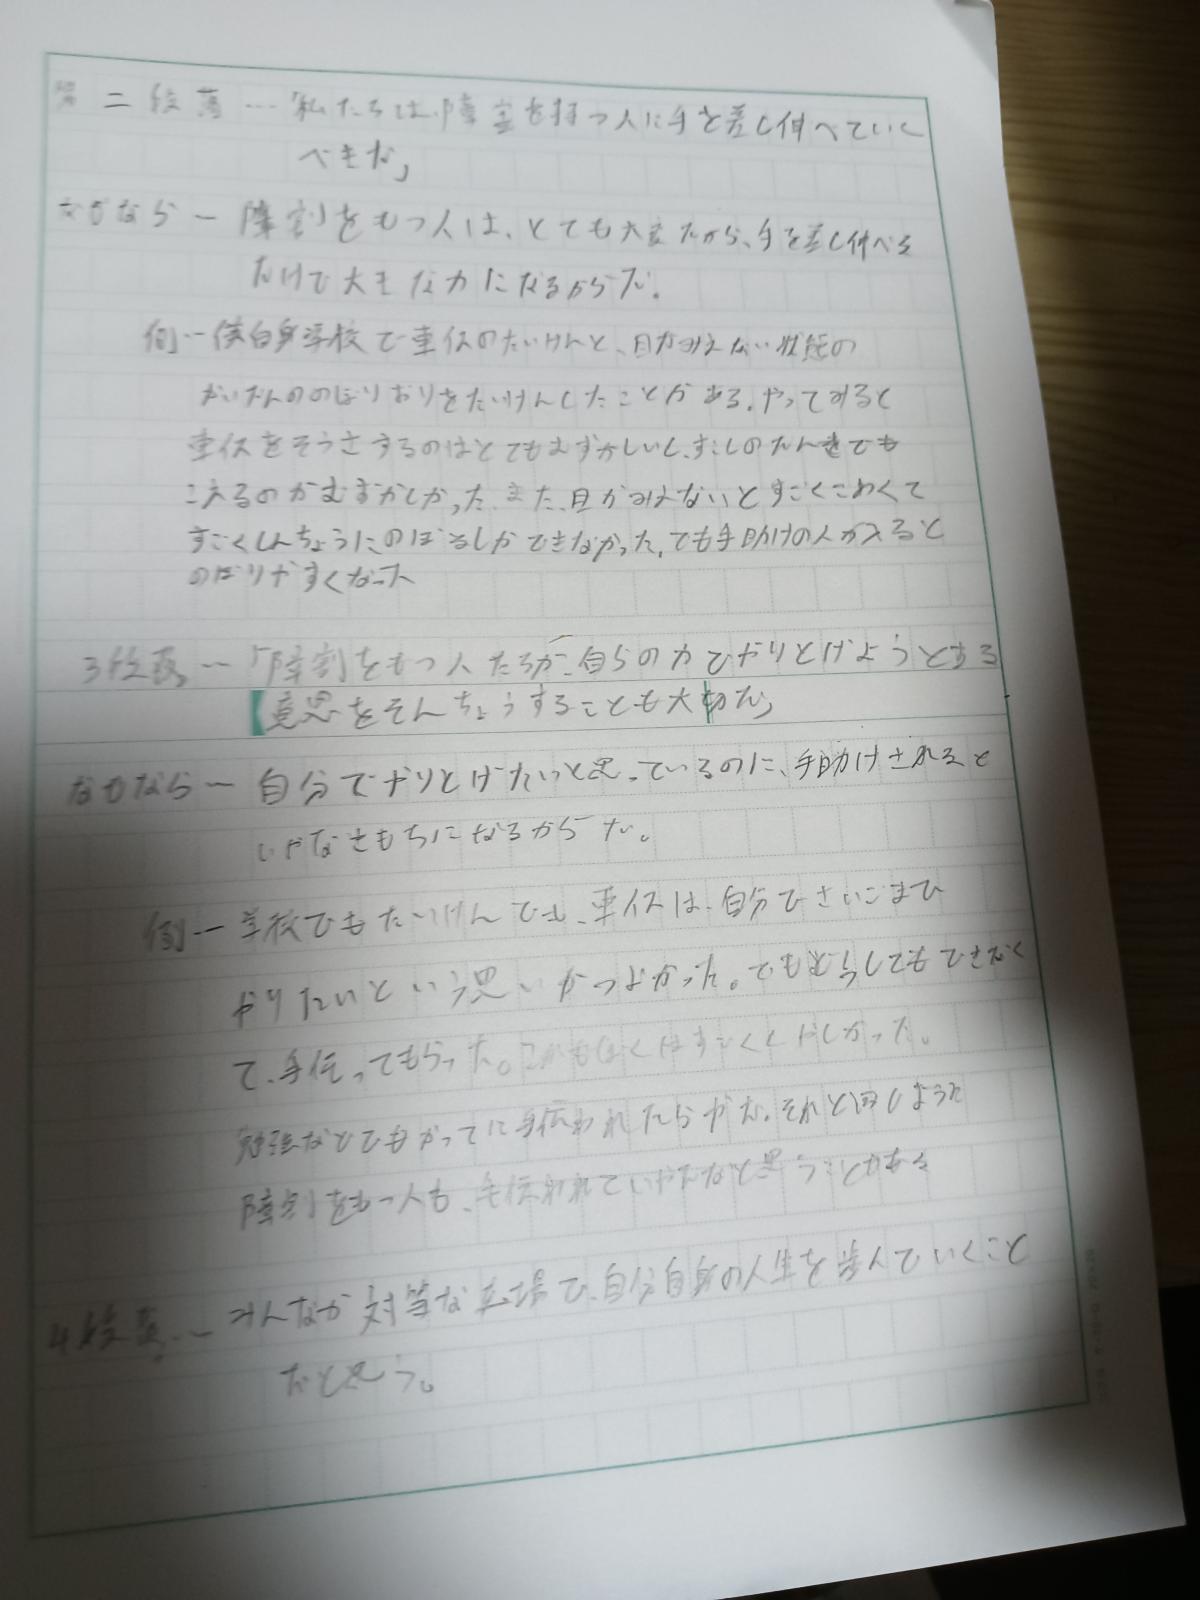 第二段落…「私たちは、障害を持つ人に手を差し伸べていく
べきだ」
なぜなら ー 障割をもつ人は、とても大変だから、手を差し伸べる
だけで大きな力になるからだ。
例ー僕自身学校で車イスのたいけんと、目がみえない状態の
かいだんののぼりおりをたいけんしたことがある。やってみると
車イスをそうさするのはとてもむずかしいし、すこしのだんさでも
こえるのがむずかしかった。また、目がみえないとすごくこわくて
すごくしんちょうにのぼるしかできなかった。でも手助けの人がいると
のぼりやすくなった
3段落ー「障割をもつ人たちが、自らの力でやりとげようとする
意思をそんちょうすることも大切だ」
なぜなら ー 自分でやりとげたいと思っているのに、手助けされると
いやなきもちになるからだ。
例ー学校でもたいけんでも、車イスは、自分でさいごまで
やりたいという思いがつよかった。でもどうしてもできなく
て、手伝ってもらった。ぼくはすごくくやしかった。
勉強などでもかってに手伝われたらやだ。それと同じように
障割をもつ人も、手伝われていやだなと思うことがある
4段落ー みんなが対等な立場で、自分自身の人生を歩んでいくこと
だと思う。